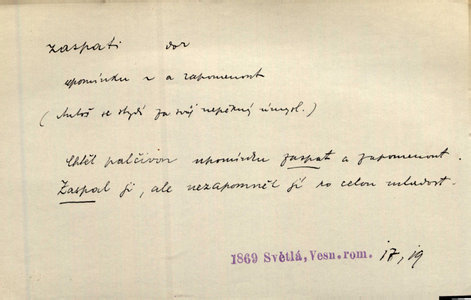 zaspati dok
upomínku z a zapomenout
(Antoš se stydí za svůj nepěkný úmysl.)
Chtěl palčivou upomínku zaspat a zapomenout.
Zaspal ji, ale nezapomněl jí po celou mladost.
1869 Světlá, Vesn. rom. 17, 19